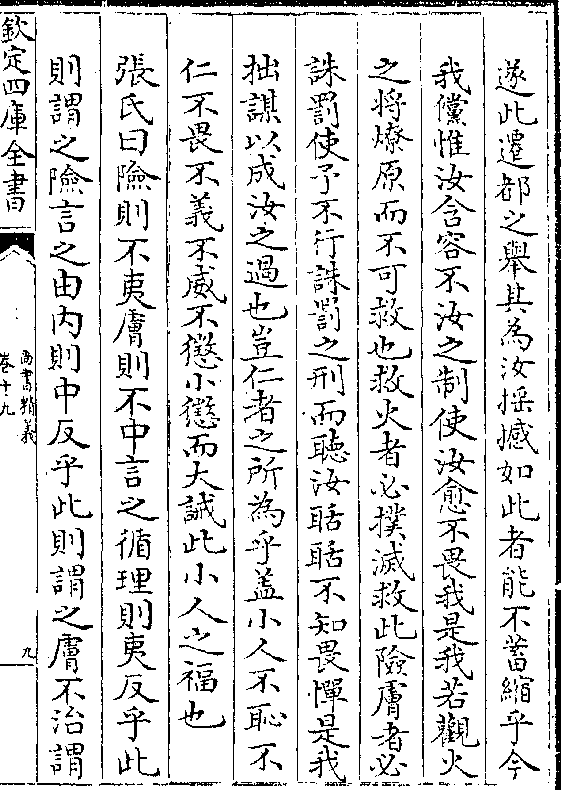 遂此遷都之舉其為汝揺撼如此者能不蓄縮乎今
我儻惟汝含容不汝之制使汝愈不畏我是我若觀火
之将燎原而不可救也救火者必撲滅救此險膚者必
誅罰使予不行誅罰之刑而聽汝聒聒不知畏憚是我
拙謀以成汝之過也豈仁者之所為乎盖小人不恥不
仁不畏不義不威不懲小懲而大誡此小人之福也
張氏曰險則不夷膚則不中言之循理則夷反乎此
則謂之險言之由内則中反乎此則謂之膚不治謂
欽定四庫全書
尚書精義
卷十九
九